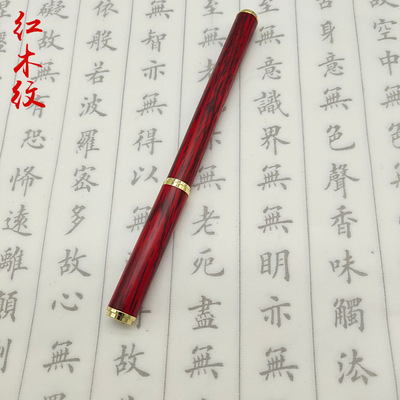 红木纹
故空中無
身意無色聲香味觸法
無意識界無無明亦無
無老死盡無
智亦無得以無
依般若波羅蜜多故心無
礙故無有恐怖遠離顛倒